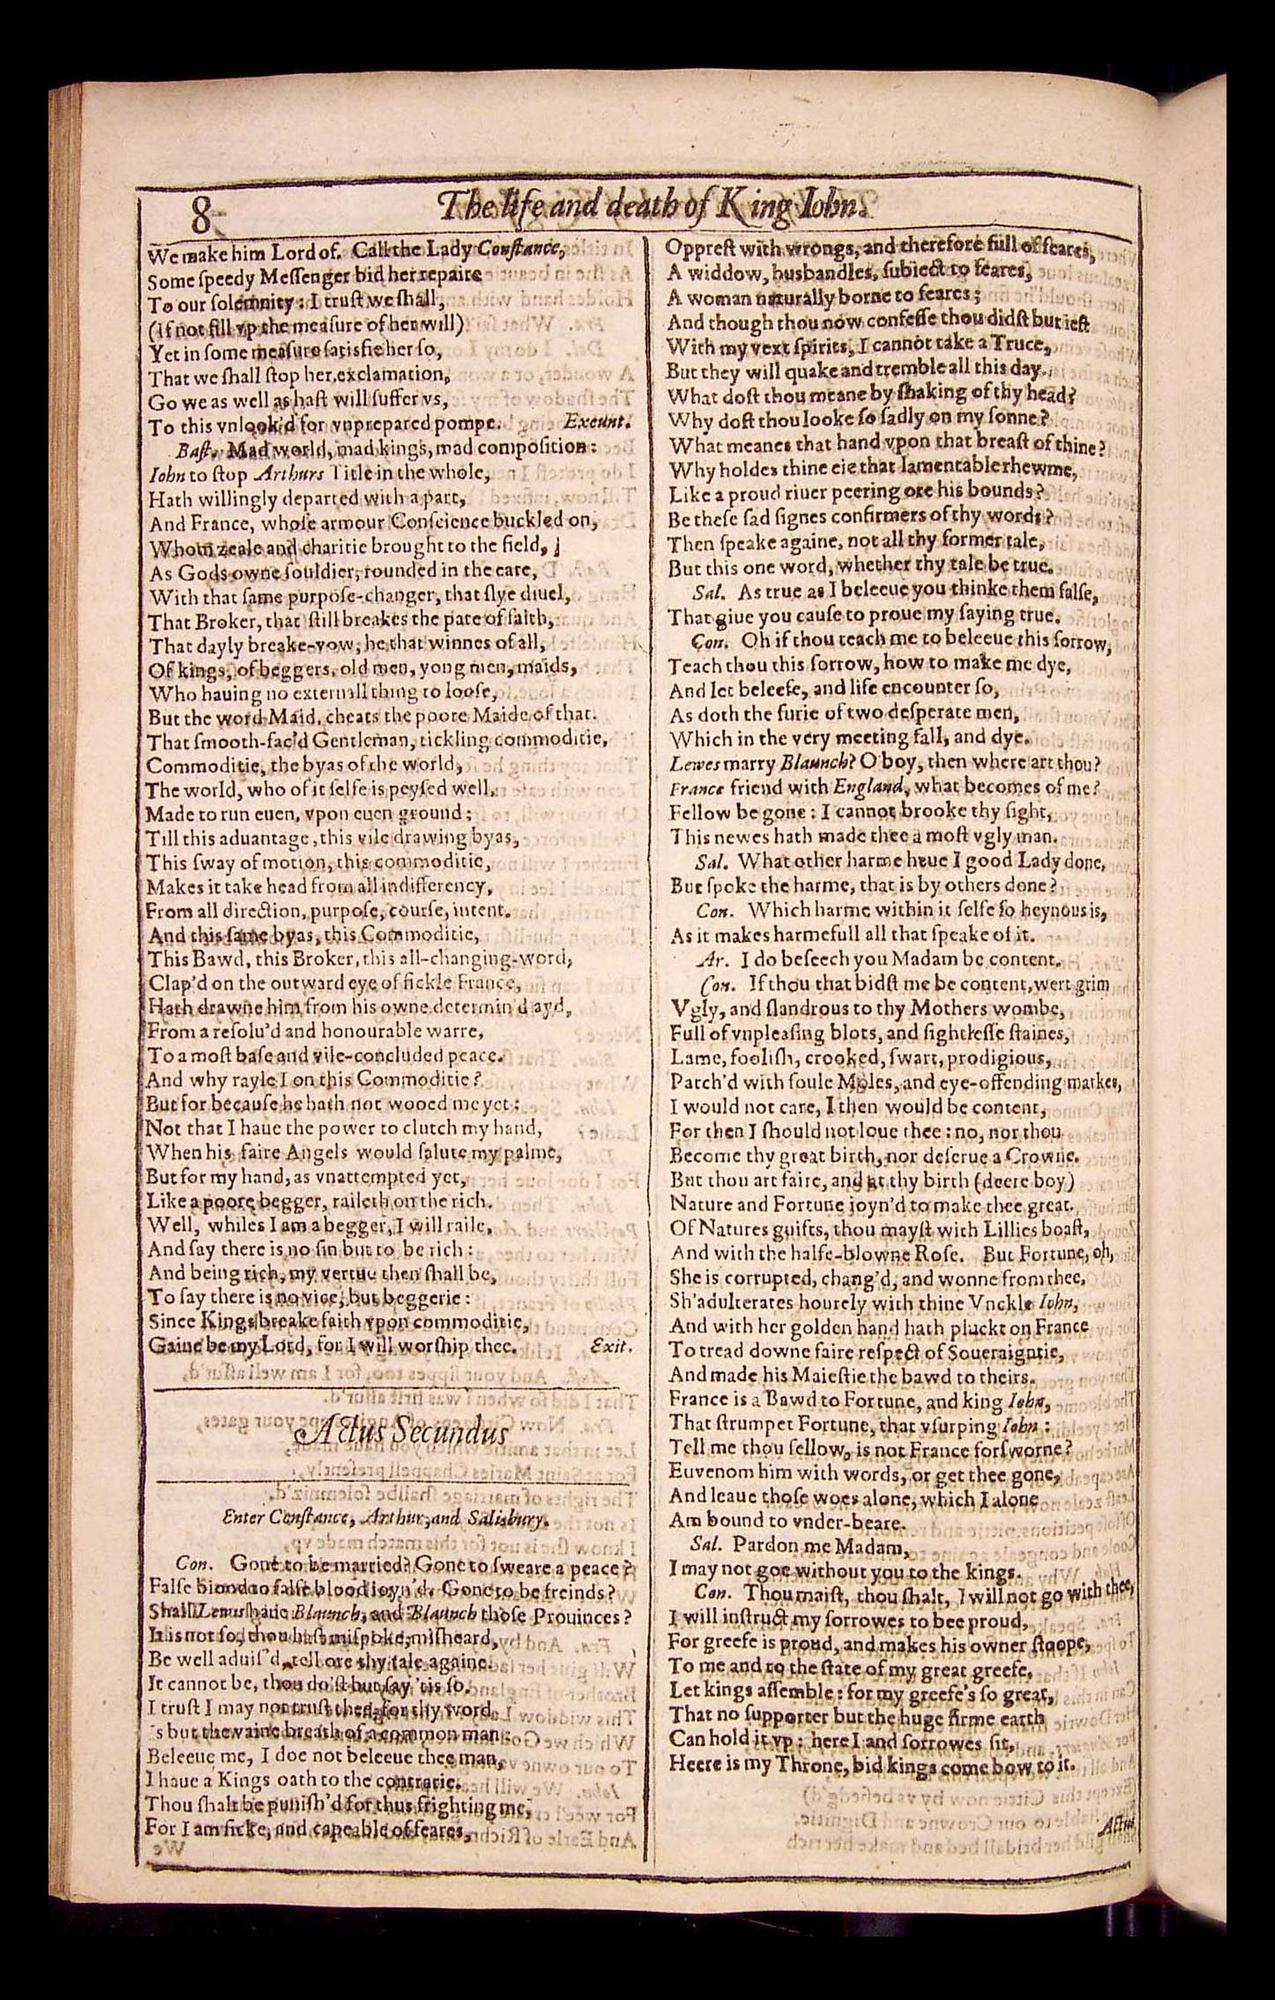 8
The life and death of King Iohn.
We make him Lord of. Call the Lady Constance,
Some speedy Messenger bid her repaire
To our solemnity: I trust we shall,
(If not fill vp the measure of her will)
Yet in some measure satisfie her so,
That we shall stop her exclamation,
Go we as well as hast will suffer vs,
To this vnlook'd for vnprepared pompe. Exeunt.
Bast. Mad world, mad kings, mad composition:
Iohn to stop Arthurs Title in the whole,
Hath willingly departed with a part,
And France, whose armour Conscience buckled on,
Whom zeale and charitie brought to the field,
As Gods owne souldier, rounded in the eare,
With that same purpose-changer, that slye diuel,
That Broker, that still breakes the pate of faith,
That dayly breake-vow, he that winnes of all,
Of kings, of beggers, old men, yong men, maids,
Who hauing no externall thing to loose,
But the word Maid, cheats the poore Maide of that.
That smooth-fac'd Gentleman, tickling commoditie,
Commoditie, the byas of the world,
The world, who of it selfe is peysed well,
Made to run euen, vpon euen ground;
Till this aduantage, this vile drawing byas,
This sway of motion, this commoditie,
Makes it take head from all indifferency,
From all direction, purpose, course, intent.
And this same byas, this Commoditie,
This Bawd, this Broker, this all-changing-word,
Clap'd on the outward eye of fickle France,
Hath drawne him from his owne determin'd ayd,
From a resolu'd and honourable warre,
To a most base and vile-concluded peace.
And why rayle I on this Commoditie?
But for because he hath not wooed me yet:
Not that I haue the power to clutch my hand,
When his faire Angels would salute my palme,
But for my hand, as vnattempted yet,
Like a poore begger, raileth on the rich.
Well, whiles I am a begger, I will raile,
And say there is no sin but to be rich:
And being rich, my vertue then shall be,
To say there is no vice, but beggerie:
Since Kings breake faith vpon commoditie,
Gaine be my Lord, for I will worship thee. Exit.
Actus Secundus
Enter Constance, Arthur, and Salisbury.
Con. Gone to be married? Gone to sweare a peace?
False blood to false blood ioyn'd. Gone to be freinds?
Shall Lewis haue Blaunch, and Blaunch those Prouinces?
It is not so, thou hast mispoke, misheard,
Be well aduis'd, tell ore thy tale againe.
It cannot be, thou do'st but say 'tis so.
I trust I may not trust thee, for thy word
's but the vaine breath of a common man:
Beleeue me, I doe not beleeue thee man,
I haue a Kings oath to the contrarie.
Thou shalt be punish'd for thus frighting me,
For I am sicke, and capeable of feares,
Opprest with wrongs, and therefore full of feares,
A widdow, husbandles, subiect to feares,
A woman naturally borne to feares;
And though thou now confesse thou didst but iest
With my vext spirits, I cannot take a Truce,
But they will quake and tremble all this day.
What dost thou meane by shaking of thy head?
Why dost thou looke so sadly on my sonne?
What meanes that hand vpon that breast of thine?
Why holdes thine eie that lamentable rhewme,
Like a proud riuer peering ore his bounds?
Be these sad signes confirmers of thy words?
Then speake againe, not all thy former tale,
But this one word, whether thy tale be true.
Sal. As true as I beleeue you thinke them false,
That giue you cause to proue my saying true.
Con. Oh if thou teach me to beleeue this sorrow,
Teach thou this sorrow, how to make me dye,
And let beleefe, and life encounter so,
As doth the furie of two desperate men,
Which in the very meeting fall, and dye.
Lewes marry Blaunch? O boy, then where art thou?
France friend with England, what becomes of me?
Fellow be gone: I cannot brooke thy sight,
This newes hath made thee a most vgly man.
Sal. What other harme haue I good Lady done,
But spoke the harme, that is by others done?
Con. Which harme within it selfe so heynous is,
As it makes harmefull all that speake of it.
Ar. I do beseech you Madam be content.
Con. If thou that bidst me be content, wert grim
Vgly, and slandrous to thy Mothers wombe,
Full of vnpleasing blots, and sightlesse staines,
Lame, foolish, crooked, swart, prodigious,
Patch'd with foule Moles, and eye-offending markes,
I would not care, I then would be content,
For then I should not loue thee: no, nor thou
Become thy great birth, nor deserue a Crowne.
But thou art faire, and at thy birth (deere boy)
Nature and Fortune ioyn'd to make thee great.
Of Natures guifts, thou mayst with Lillies boast,
And with the halfe-blowne Rose. But Fortune, oh,
She is corrupted, chang'd, and wonne from thee,
Sh'adulterates hourely with thine Vnckle Iohn,
And with her golden hand hath pluckt on France
To tread downe faire respect of Soueraigntie,
And made his Maiestie the bawd to theirs.
France is a Bawd to Fortune, and king Iohn,
That strumpet Fortune, that vsurping Iohn:
Tell me thou fellow, is not France forsworne?
Euvenom him with words, or get thee gone,
And leaue those woes alone, which I alone
Am bound to vnder-beare.
Sal. Pardon me Madam,
I may not goe without you to the kings.
Con. Thou maist, thou shalt, I will not go with thee,
I will instruct my sorrowes to bee proud,
For greefe is proud, and makes his owner stoope,
To me and to the state of my great greefe,
Let kings assemble: for my greefe's so great,
That no supporter but the huge firme earth
Can hold it vp: here I and sorrowes sit,
Heere is my Throne, bid kings come bow to it.
Actus